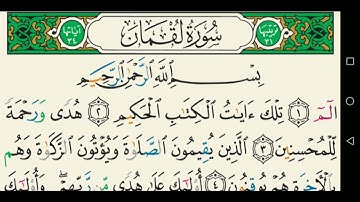 ترتيبها ٣١ سُورَةُ لُقْمَانَ آياتها ٣٤
بِسْمِ ٱللَّهِ ٱلرَّحْمَٰنِ ٱلرَّحِيمِ
الٓمٓ ١ تِلْكَ ءَايَٰتُ ٱلْكِتَٰبِ ٱلْحَكِيمِ ٢ هُدًى وَرَحْمَةً
لِّلْمُحْسِنِينَ ٣ ٱلَّذِينَ يُقِيمُونَ ٱلصَّلَوٰةَ وَيُؤْتُونَ ٱلزَّكَوٰةَ وَهُم
بِٱلْءَاخِرَةِ هُمْ يُوقِنُونَ ٤ أُو۟لَٰٓئِكَ عَلَىٰ هُدًى مِّن رَّبِّهِمْ وَأُو۟لَٰٓئِكَ